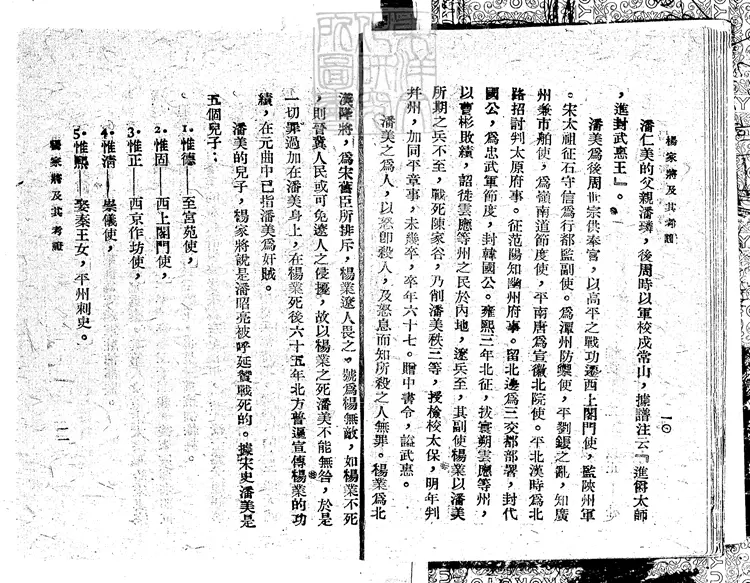 楊家將及其考證
一〇
潘仁美的父親潘璘，後周時以軍校戍常山，據譜注云『進爵太師
，進封武惠王』。
潘美為後周世宗供奉官，以高平之戰功遷西上閣門使，監陝州軍
。宋太祖征石守信為行都監副使。為潭州防禦使，平劉鋹之亂，知廣
州兼市舶使，為嶺南道節度使，平南唐為宣徽北院使。平北漢時為北
路招討判太原府事。征范陽知幽州府事。留北邊為三交都部署，封代
國公，為忠武軍節度，封韓國公。雍熙三年北征，拔寰朔雲應等州，
以曹彬敗績，詔徙雲應等州之民於內地，遼兵至，其副使楊業以潘美
所期之兵不至，戰死陳家谷，乃削潘美秩三等，授檢校太保，明年判
并州，加同平章事，未幾卒，卒年六十七。贈中書令，諡武惠。
潘美之為人，以怒即殺人，及怒息而知所殺之人無罪。楊業為北
漢降將，為宋舊臣所排斥，楊業遼人畏之。號為楊無敵，如楊業不死
，則晉冀人民或可免遼人之侵擾，故以楊業之死潘美不能無咎，於是
一切罪過加在潘美身上，在楊業死後六十五年北方普遍宣傳楊業的功
績，在元曲中已指潘美為奸賊。
潘美的兒子，楊家將說是潘昭亮被呼延贊戰死的。據宋史潘美是
五個兒子：
1.惟德——至宮苑使，
2.惟固——西上閣門使，
3.惟正——西京作坊使，
4.惟清——崇儀使，
5.惟熙——娶秦王女，平州刺史。
楊家將及其考證
一一